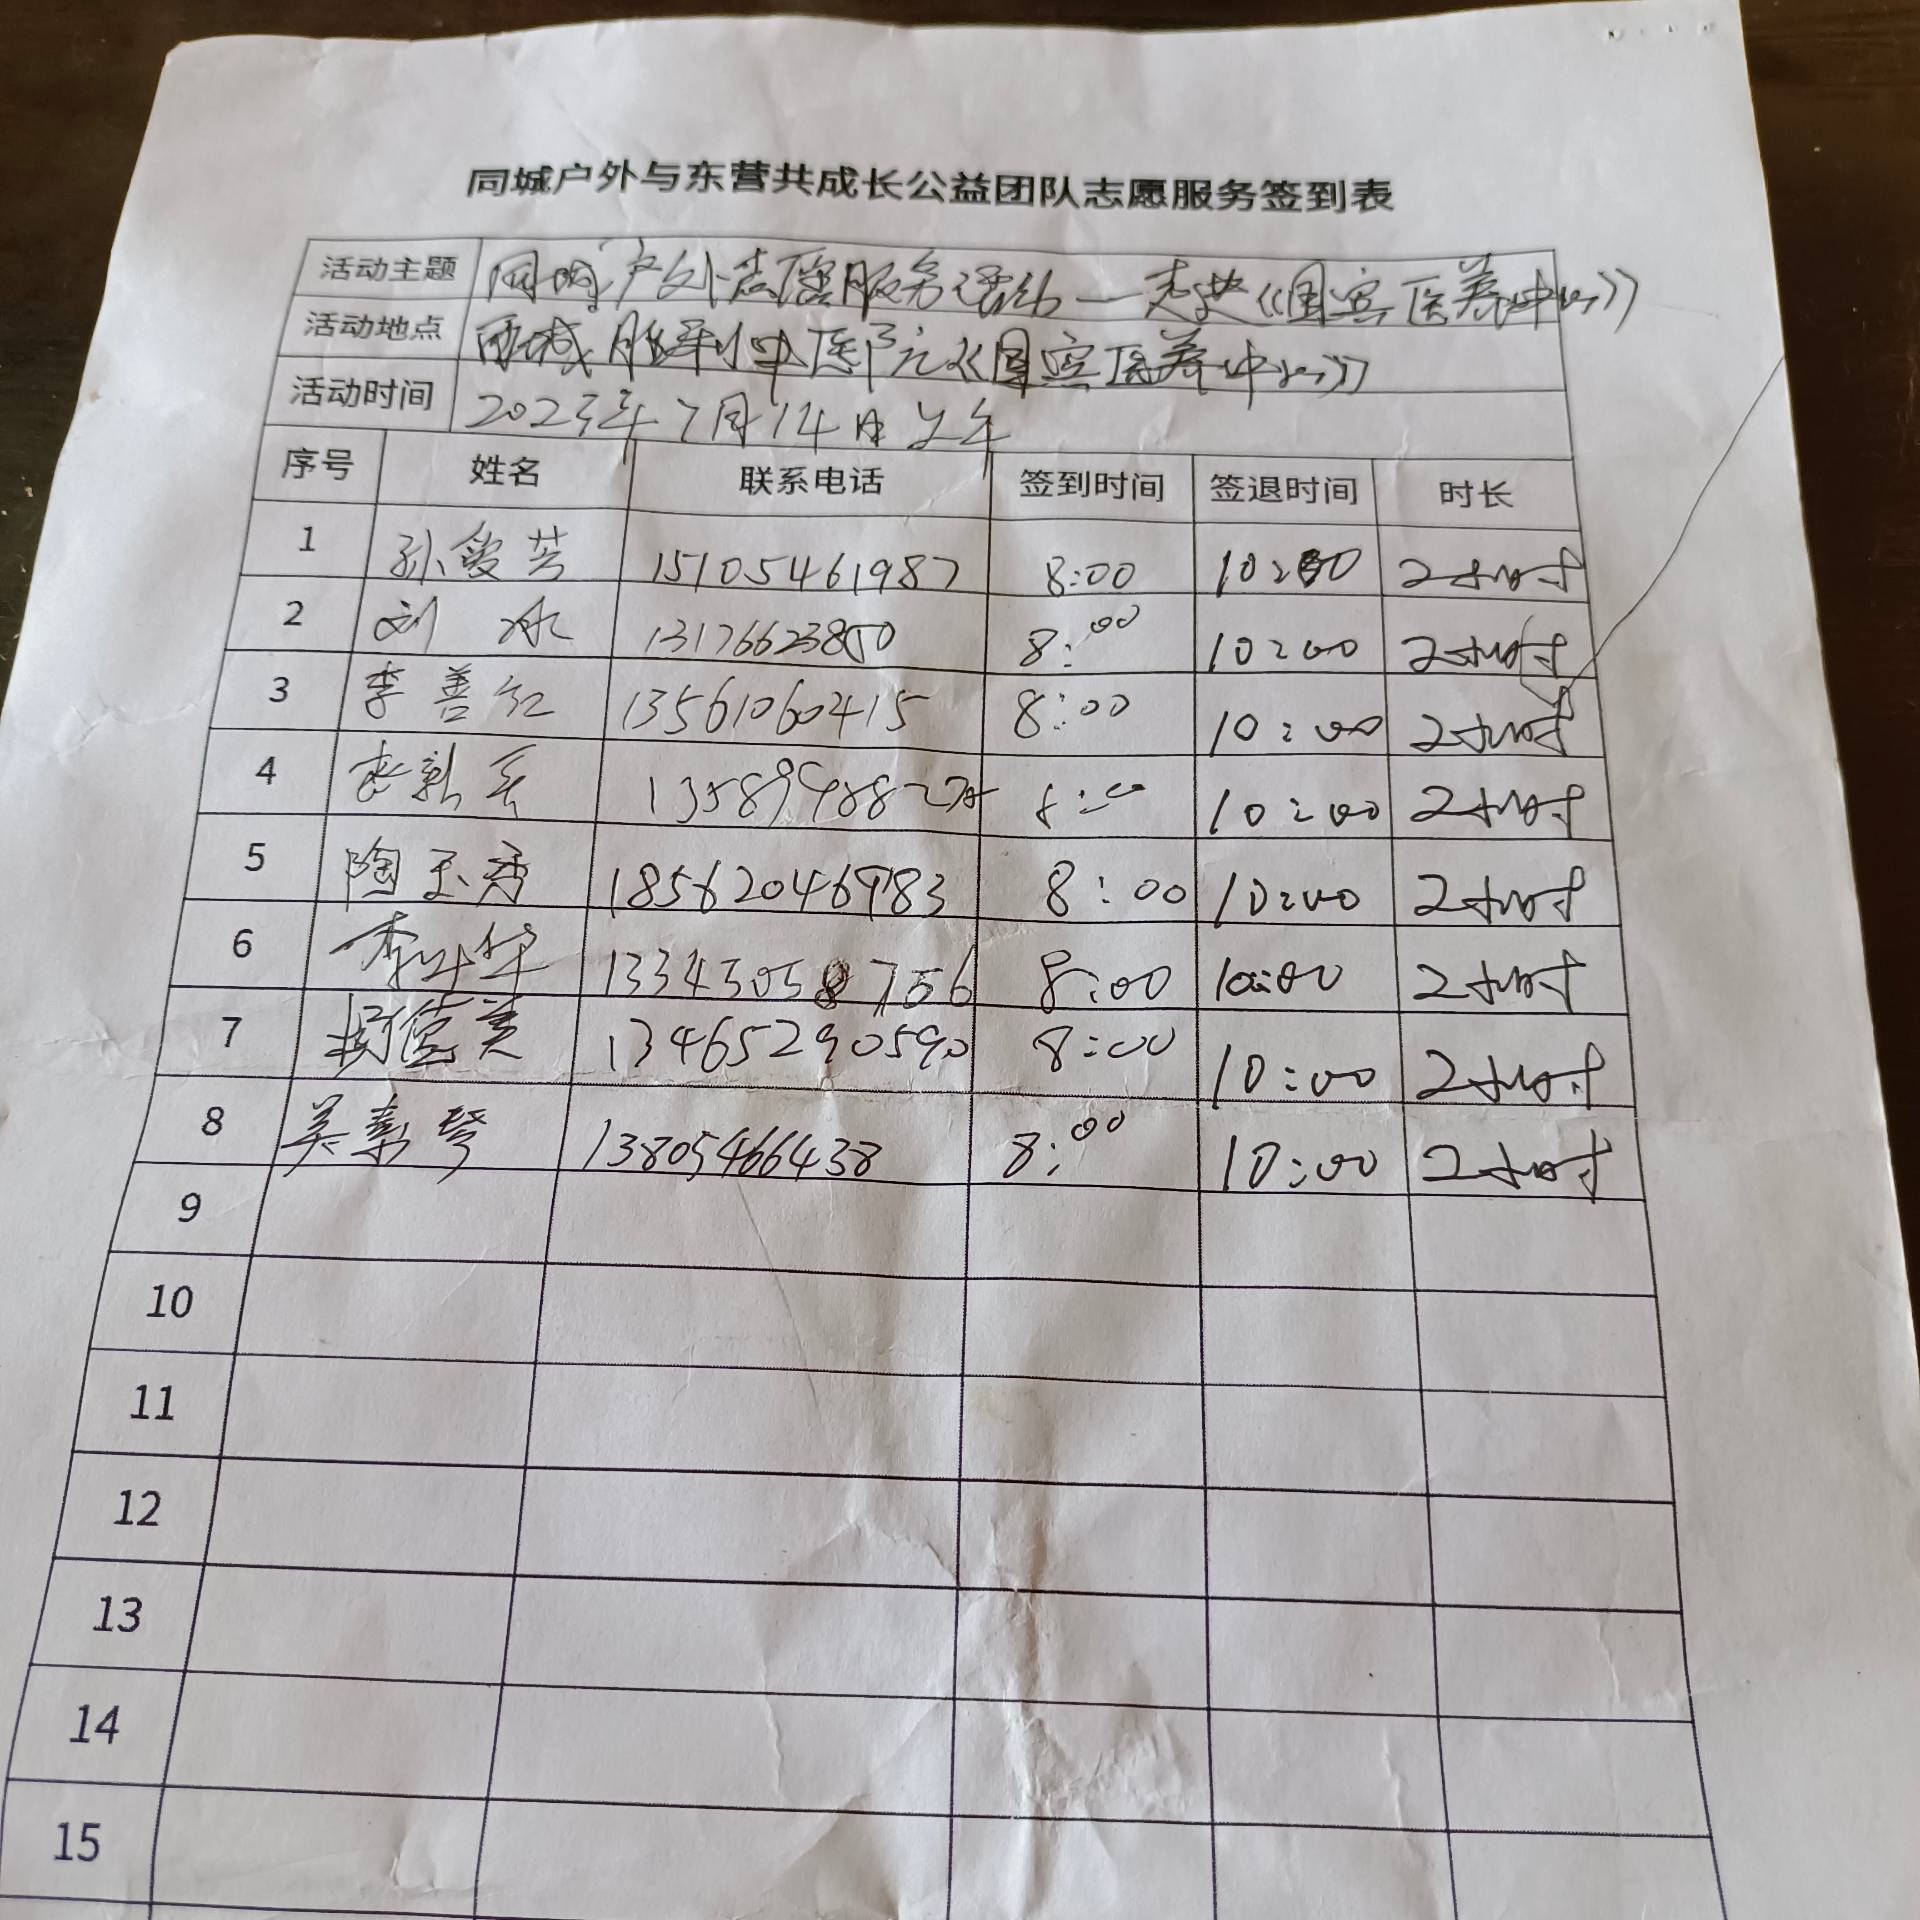 同城户外与东营共成长公益团队志愿服务签到表
活动主题 同城户外志愿服务活动——走进《国宾医养中心》
活动地点 西城胜利中医院《国宾医养中心》
活动时间 2023年7月14日上午
序号 姓名 联系电话 签到时间 签退时间 时长
1 孙爱芳 15105461987 8:00 10:00 2小时
2 刘冰 13176623850 8:00 10:00 2小时
3 李善红 13561060415 8:00 10:00 2小时
4 李 8:00 10:00 2小时
5 陶玉秀 8:00 10:00 2小时
6 李叶华 8:00 10:00 2小时
7 13465290590 8:00 10:00 2小时
8 吴素琴 13805466438 8:00 10:00 2小时
9
10
11
12
13
14
15